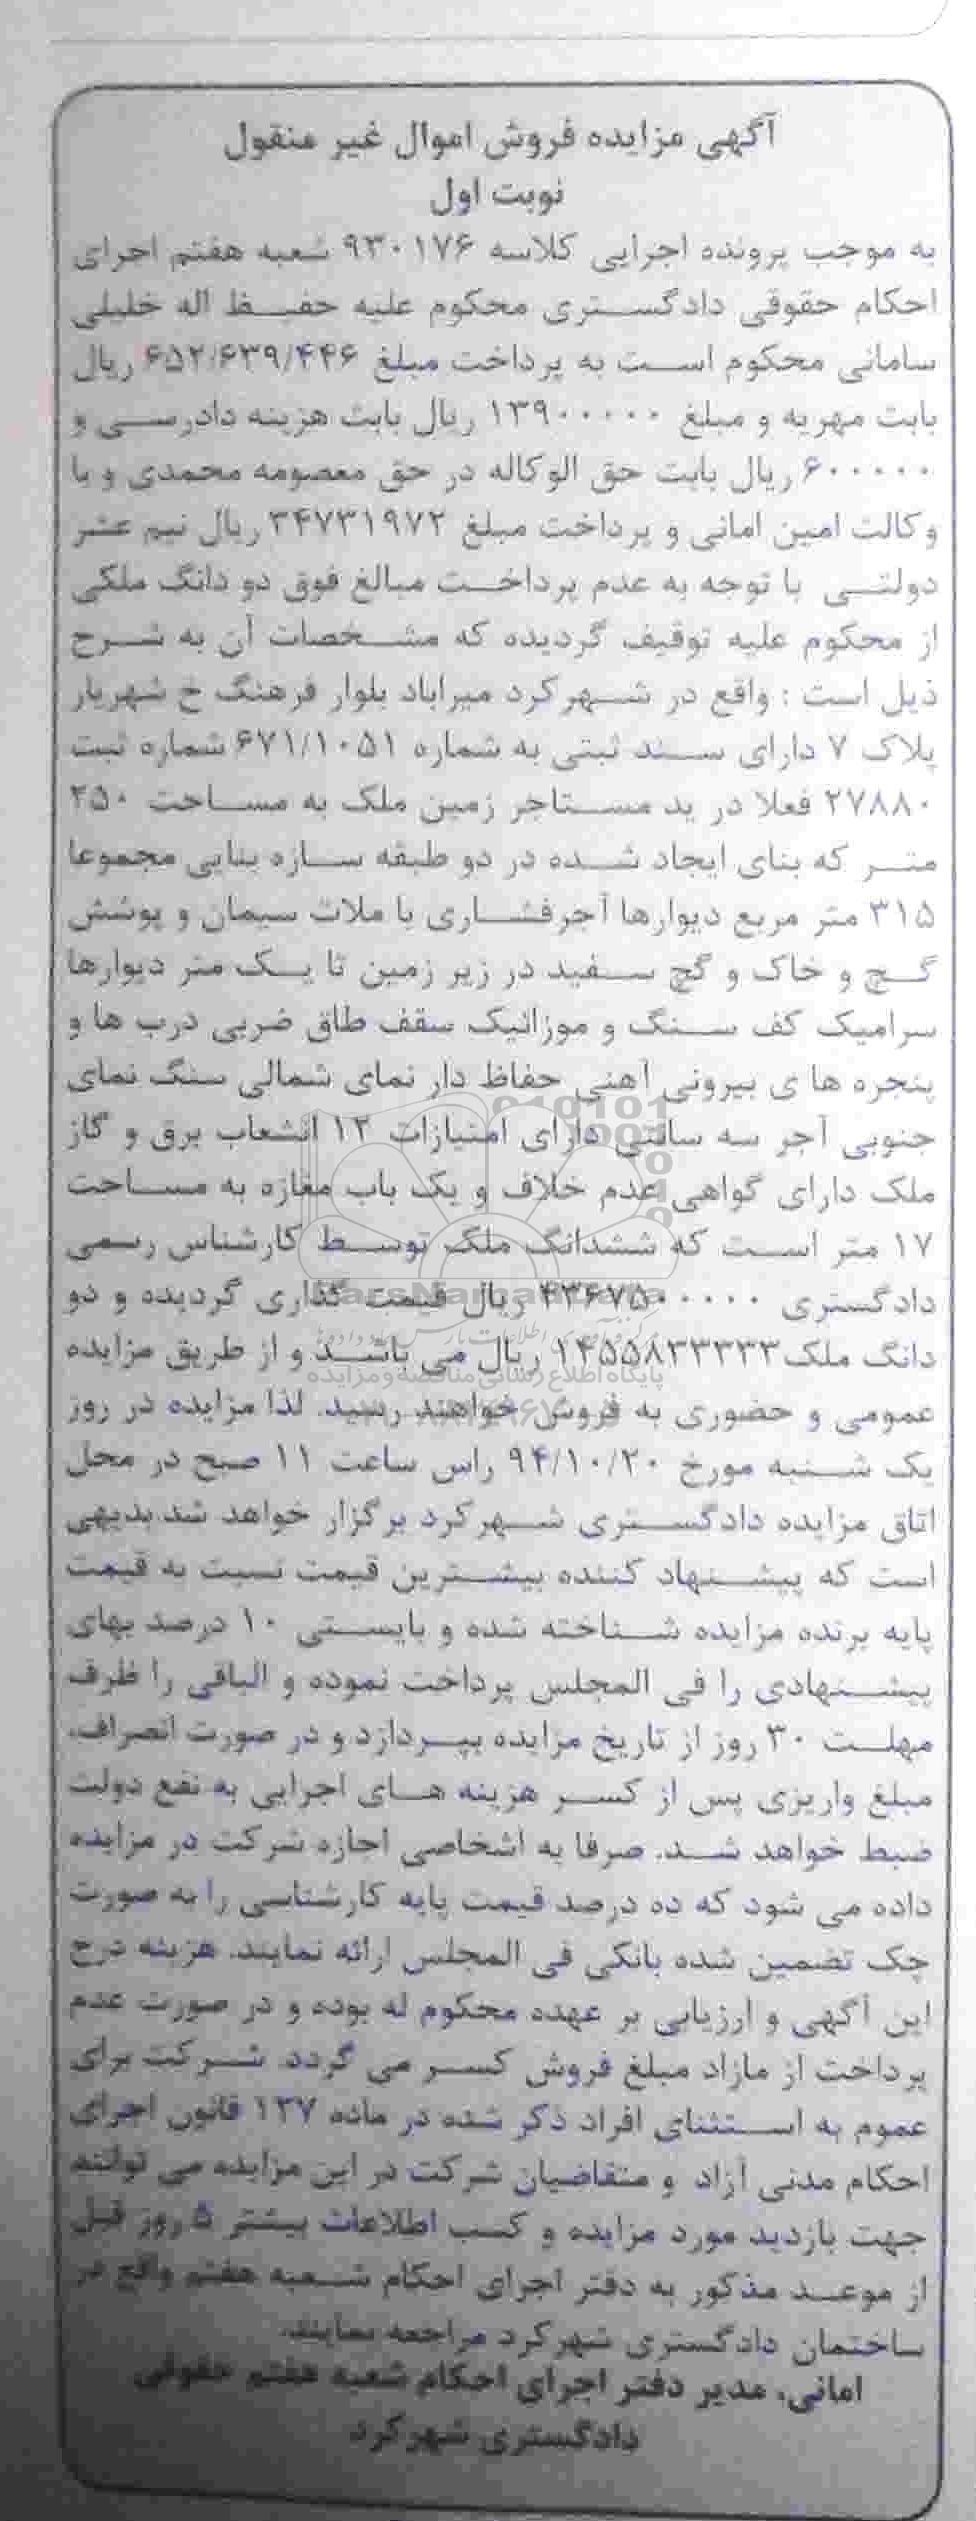 آگهی مزایده فروش اموال غیر منقول
نوبت اول
به موجب پرونده اجرایی کلاسه ۹۳۰۱۷۶ شعبه هفتم اجرای
احکام حقوقی دادگستری محکوم علیه حفیظ اله خلیلی
سامانی محکوم است به پرداخت مبلغ ۶۵۲/۶۳۹/۴۴۶ ریال
بابت مهریه و مبلغ ۱۳۹۰۰۰۰۰ ریال بابت هزینه دادرسی و
۶۰۰۰۰۰ ریال بابت حق الوکاله در حق معصومه محمدی و با
وکالت امین امانی و پرداخت مبلغ ۳۴۷۳۱۹۷۲ ریال نیم عشر
دولتی با توجه به عدم پرداخت مبالغ فوق دو دانگ ملکی
از محکوم علیه توقیف گردیده که مشخصات آن به شرح
ذیل است : واقع در شهرکرد میراباد بلوار فرهنگ خ شهریار
پلاک ۷ دارای سند ثبتی به شماره ۶۷۱/۱۰۵۱ شماره ثبت
۲۷۸۸۰ فعلا در ید مستاجر زمین ملک به مساحت ۲۵۰
متر که بنای ایجاد شده در دو طبقه سازه بنایی مجموعا
۳۱۵ متر مربع دیوارها آجرفشاری با ملات سیمان و پوشش
گچ و خاک و گچ سفید در زیر زمین تا یک متر دیوارها
سرامیک کف سنگ و موزائیک سقف طاق ضربی درب ها و
پنجره ها ی بیرونی آهنی حفاظ دار نمای شمالی سنگ نمای
جنوبی آجر سه سانتی دارای امتیازات ۱۲ انشعاب برق و گاز
ملک دارای گواهی عدم خلاف و یک باب مغازه به مساحت
۱۷ متر است که ششدانگ ملک توسط کارشناس رسمی
دادگستری ۴۳۶۷۵۰۰۰۰۰ ریال قیمت گذاری گردیده و دو
دانگ ملک ۱۴۵۵۸۳۳۳۳۳ ریال می باشد و از طریق مزایده
عمومی و حضوری به فروش خواهند رسید. لذا مزایده در روز
یک شنبه مورخ ۹۴/۱۰/۲۰ راس ساعت ۱۱ صبح در محل
اتاق مزایده دادگستری شهرکرد برگزار خواهد شد.بدیهی
است که پیشنهاد کننده بیشترین قیمت نسبت به قیمت
پایه برنده مزایده شناخته شده و بایستی ۱۰ درصد بهای
پیشنهادی را فی المجلس پرداخت نموده و الباقی را ظرف
مهلت ۳۰ روز از تاریخ مزایده بپردازد و در صورت انصراف،
مبلغ واریزی پس از کسر هزینه های اجرایی به نفع دولت
ضبط خواهد شد. صرفا به اشخاصی اجازه شرکت در مزایده
داده می شود که ده درصد قیمت پایه کارشناسی را به صورت
چک تضمین شده بانکی فی المجلس ارائه نمایند. هزینه درج
این آگهی و ارزیابی بر عهده محکوم له بوده و در صورت عدم
پرداخت از مازاد مبلغ فروش کسر می گردد. شرکت برای
عموم به استثنای افراد ذکر شده در ماده ۱۲۷ قانون اجرای
احکام مدنی آزاد و متقاضیان شرکت در این مزایده می توانند
جهت بازدید مورد مزایده و کسب اطلاعات بیشتر ۵ روز قبل
از موعد مذکور به دفتر اجرای احکام شعبه هفتم واقع در
ساختمان دادگستری شهرکرد مراجعه نمایند.
امانی، مدیر دفتر اجرای احکام شعبه هفتم حقوقی
دادگستری شهرکرد
پایگاه اطلاع رسانی مناقصه و مزایده